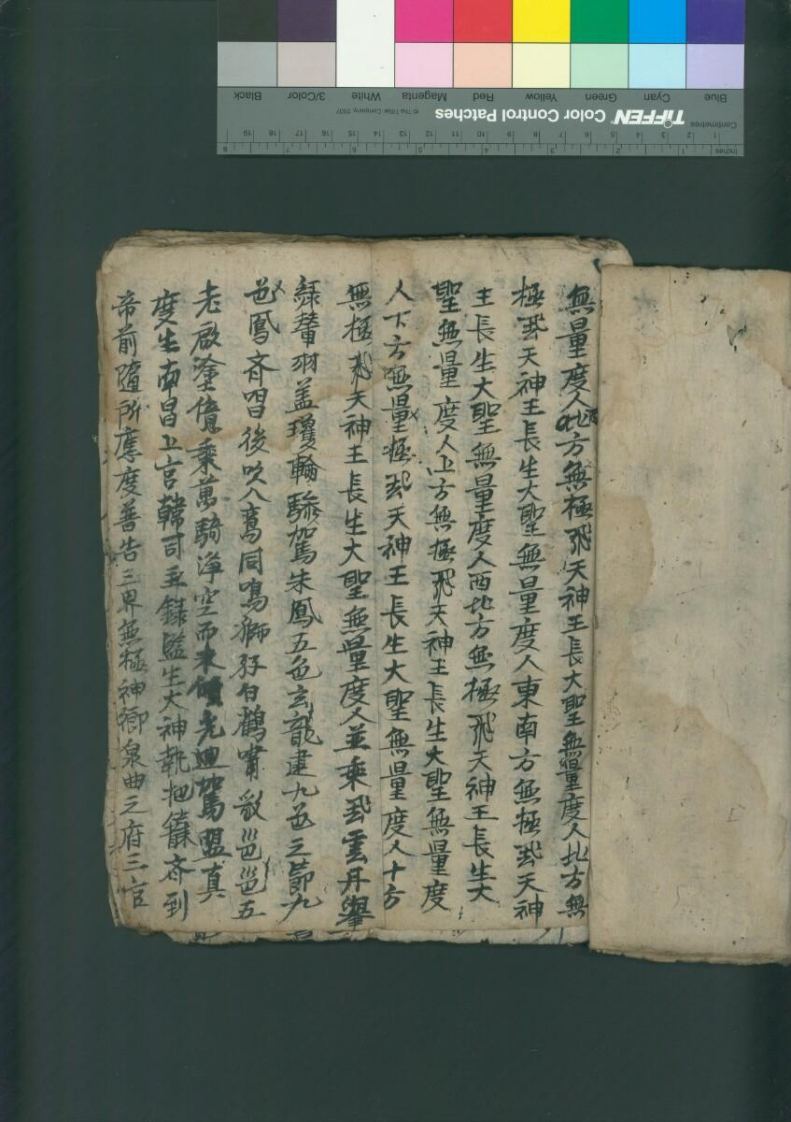 無量度人北方無極飛天神王長大聖無量度人北方無
極飛天神王長生大聖無量度人東南方無極飛天神
王長生大聖無量度人西北方無極飛天神王長生大
聖無量度人上方無極飛天神王長生大聖無量度
人下方無量極飛天神王長生大聖無量度人十方
無極飛天神王長生大聖無量度人並乘飛雲丹轝
綠輦羽盖瓊輪驂駕朱鳳五色玄龍建九色之節九
色鳳齊唱後吹八鸞同鳴獅子白鶴嘯歌邕邕五
老啟塗億乘萬騎浮空而來傾光迴駕盟真
度生南昌上宮韓司主錄監生大神執把籙齊到
帝前隨所應度普告三界無極神鄉泉曲之府三官
Blue Cyan Green Yellow Red Magenta White 3/Color Black
TIFFEN Color Control Patches
© The Tiffen Company, 2007
Centimetres
1 2 3 4 5 6 7 8 9 10 11 12 13 14 15 16 17 18 19
Inches 1 2 3 4 5 6 7 8